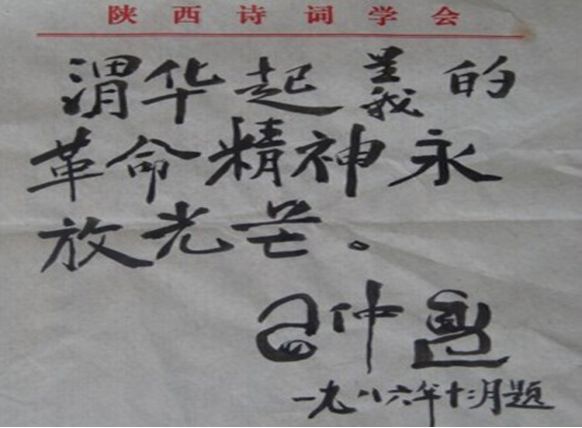 陕西诗词学会
渭华起義的
革命精神永
放光芒。
习仲勋
一九八六年十二月题